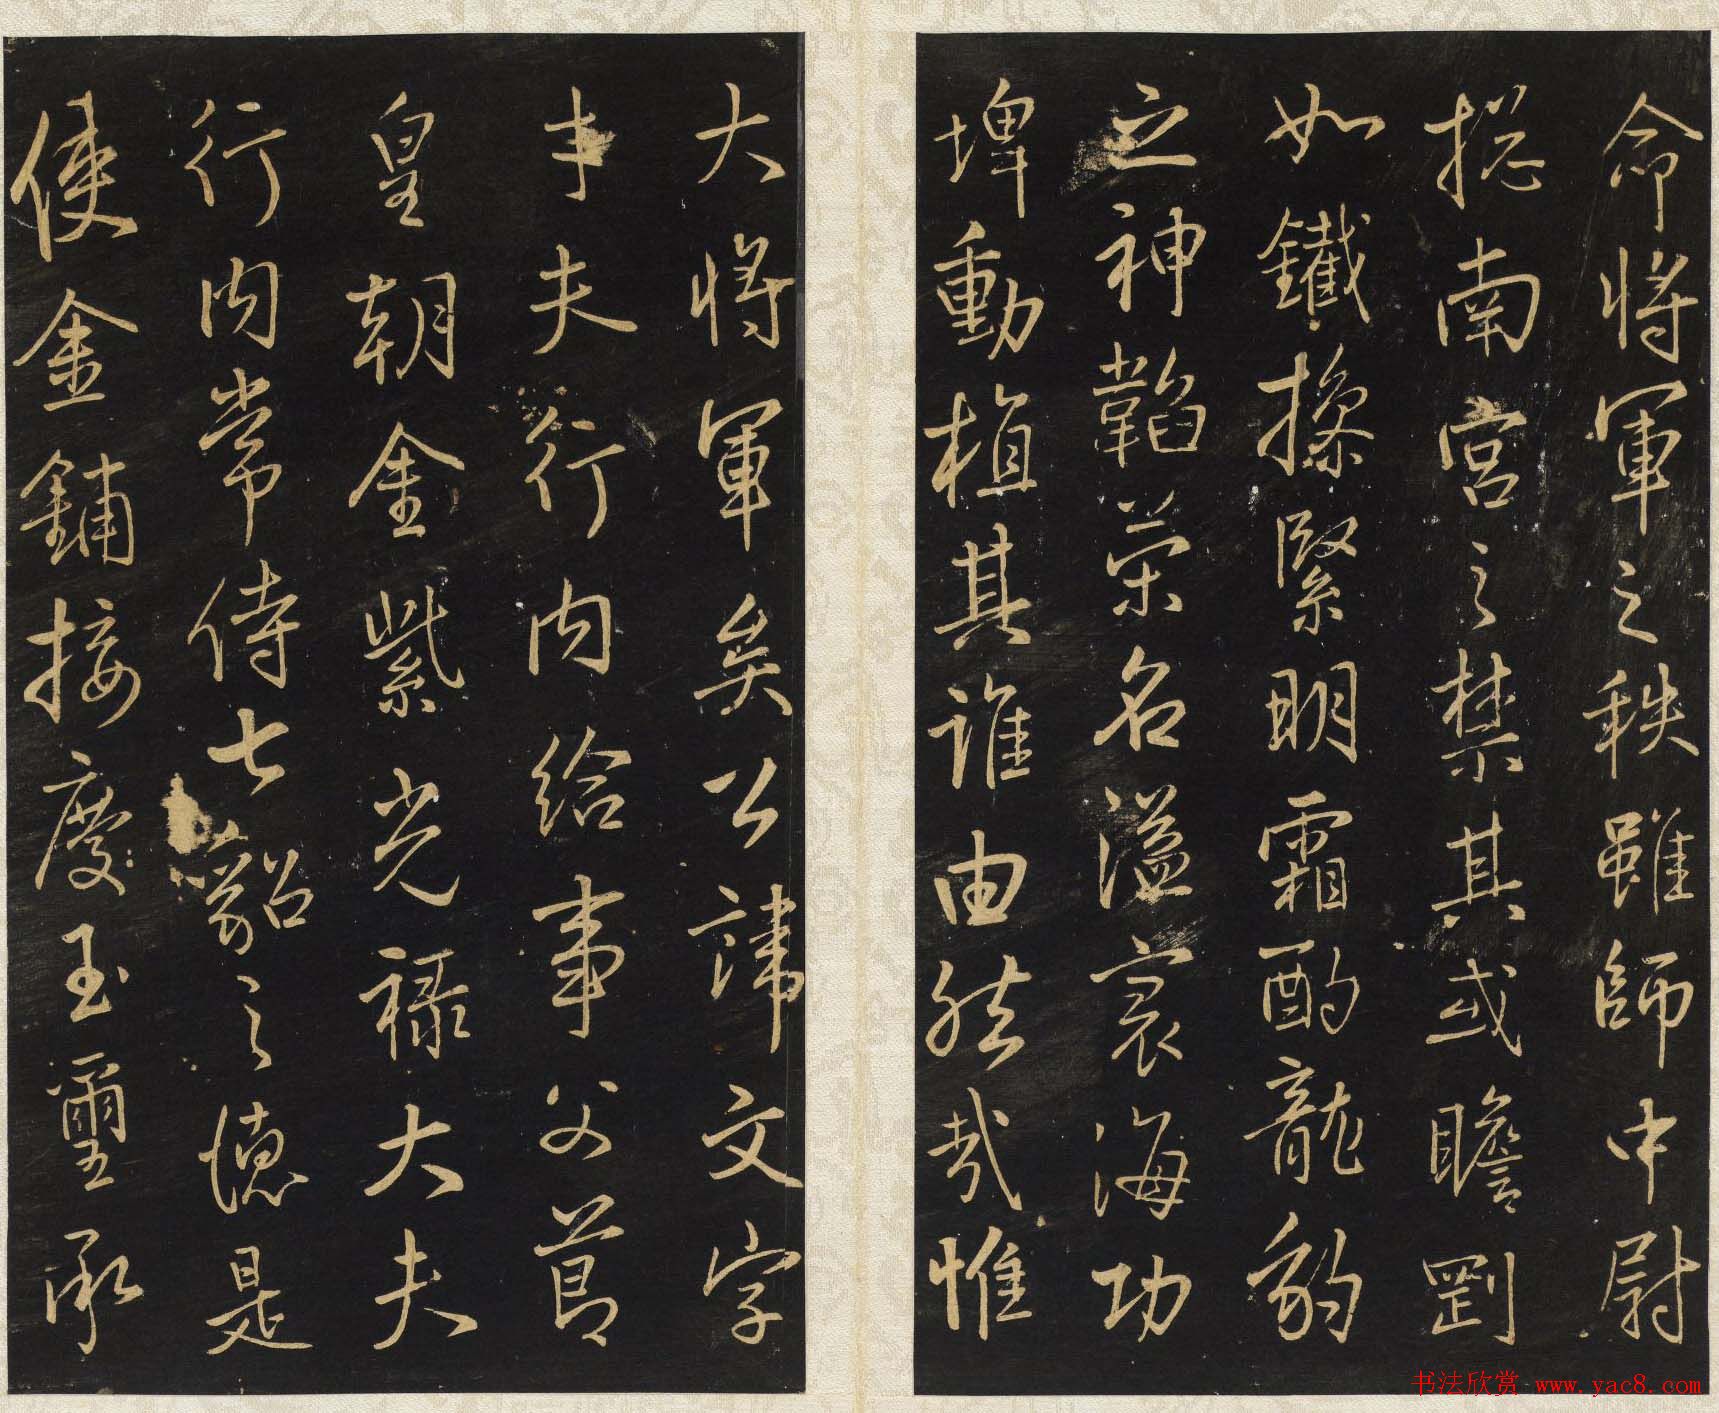 命将軍之秩雖師中尉
揔南宮之禁其或瞻剛
如鐵操緊明霜酌龍豹
之神韜榮名溢寰海功
埤動植其誰由然哉惟
大将軍矣公諱文字
夫行内給事父節
皇朝金紫光禄大夫
行内常侍七貂之德是
使金鋪接慶玉璽承
书法欣赏 www.yac8.com